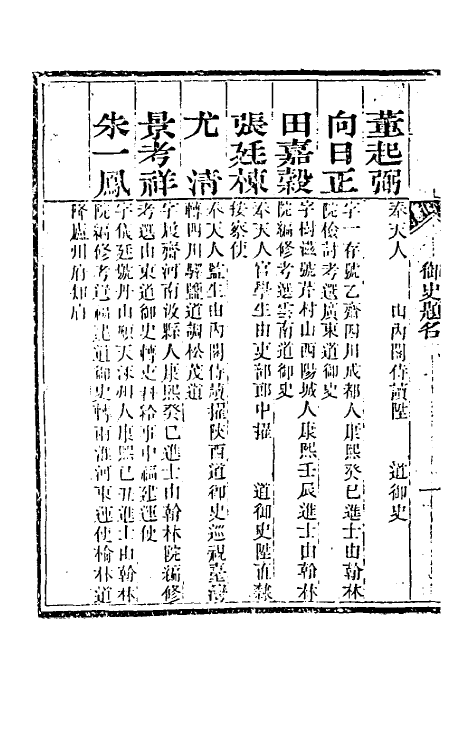 御史題名
董起弼
奉天人　由內閣侍讀陞　道御史
向日正
字一存號乙齋四川成都人康熙癸巳進士由翰林
院檢討考選廣東道御史
田嘉穀
字樹滋號芹村山西陽城人康熙壬辰進士由翰林
院編修考選雲南道御史
張廷棟
奉天人官學生由吏部郎中擢　道御史陞直隸
按察使
尤清
奉天人監生由內閣侍讀擢陝西道御史巡視臺灣
轉四川驛鹽道調松茂道
景考祥
字履齋河南汲縣人康熙癸巳進士由翰林院編修
考選山東道御史轉吏科給事中福建運使
朱一鳳
字儀廷號丹山順天涿州人康熙己丑進士由翰林
院編修考選福建道御史轉兩淮河東運使榆林道
降廬州府知府